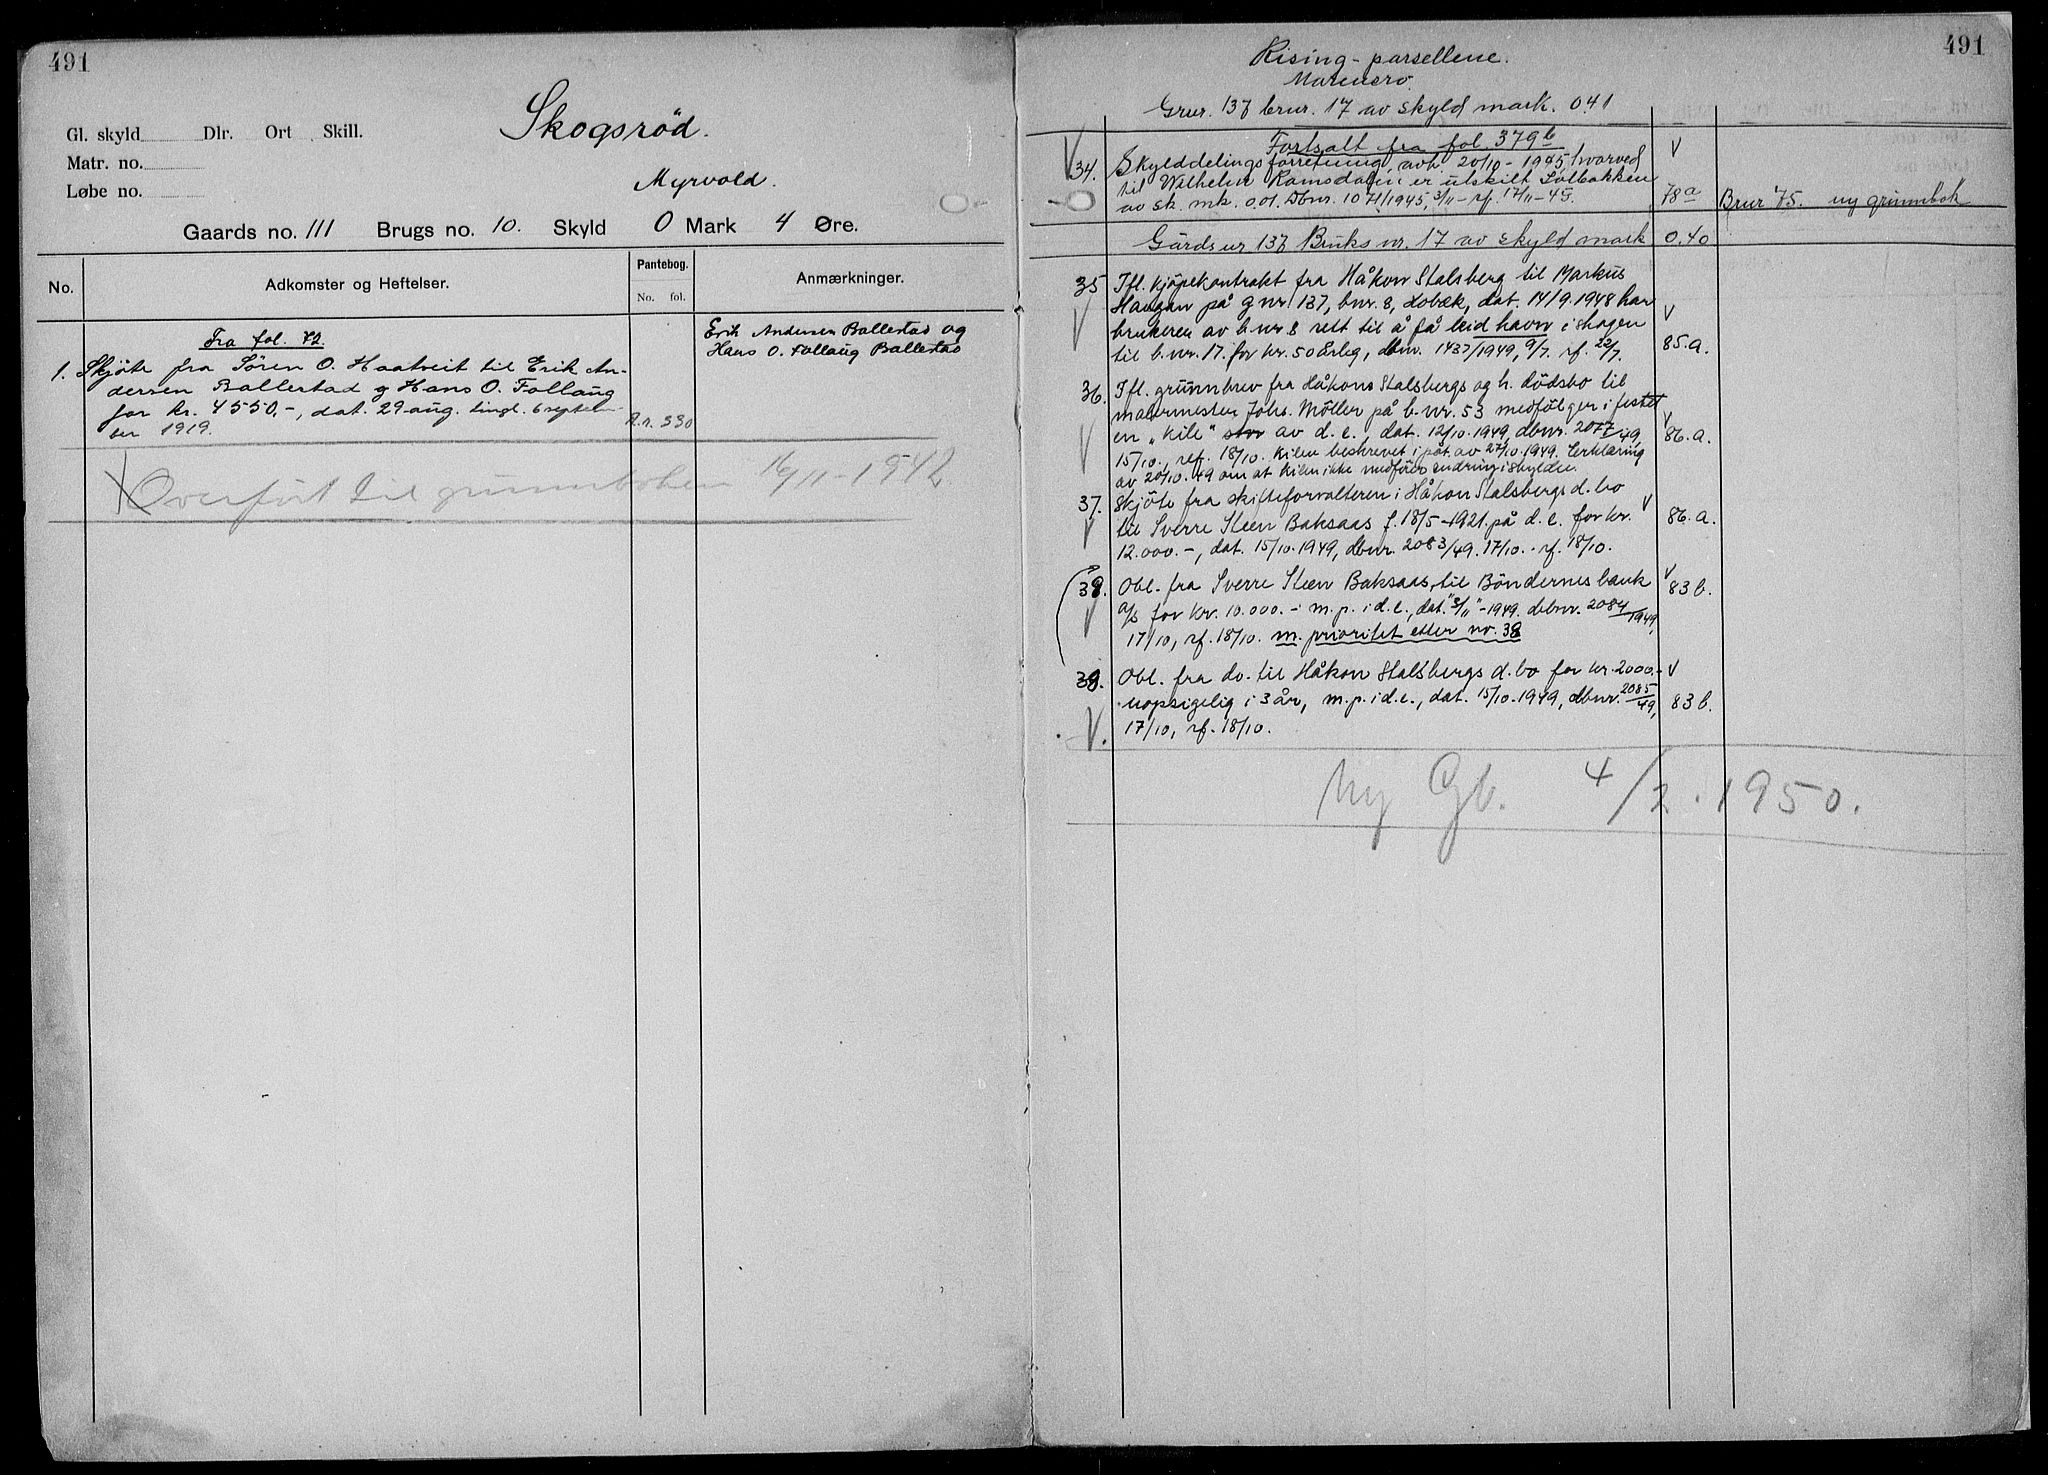 491
Skogsröd.
Gl. skyld Dlr. Ort Skill.
Matr. no.
Løbe no.
Myrvold.
Gaards no. 111 Brugs no. 10. Skyld 0 Mark 4 Øre.
No. Adkomster og Heftelser. Pantebog. No. fol. Anmærkninger.
Fra fol. 72.
1. Skjöte fra Sören O. Haatveit til Erik An-
dersen Ballestad og Hans O. Follaug
for kr. 4550,-, dat. 29 aug. tingl. 6 septem-
ber 1919. A.n. 330
Erik Andersen Ballestad og
Hans O. Follaug Ballestad
Overfört til grunnboken 16/11-1942
491
Rising-parsellene.
Marensro.
Gnr. 137 bnr. 17 av skyld mark. 0.41
Fortsatt fra fol. 379b
34. Skylddelingsforretning avh. 20/10-1945 hvorved V
til Wilhelm Ramsdalen er utskilt Solbakken
av sk. mk. 0.01. Dbnr. 1071/1945, 3/11- rf. 17/11-45. 78a Bnr 75. ny grunnbok
Gårds nr 137 Bruks nr. 17 av skyld mark 0.40
35 Ifl. kjöpekontrakt fra Håkon Stalsberg til Markus
Haugan på gnr. 137, bnr. 8, Lobæk, dat. 14/9.1948 har
brukeren av b.nr 8 rett til å få leid havn i skogen V
til b.nr. 17. for kr. 50 årleg, dbnr. 1437/1949, 9/7. rf. 22/7. 85.a.
36. Ifl. grunnbrev fra Håkon Stalsbergs og h. dödsbo til
malermester Johs. Möller på b.nr. 53 medfölger i festet V
en „kile" som av d.e., dat. 12/10.1949, dbnr. 2077/49, 86.a.
15/10., ref. 18/10. Kilen beskrevet i påt. av 27/10.1949. Erklæring
av 20/10.49 om at kilen ikke medförer endring i skylden.
37. Skjöte fra skifteforvalteren i Håkon Stalsbergs d.bo V
til Sverre Steen Baksaas f. 18/5-1921. på d.e. for kr. 86.a.
12.000.-, dat. 15/10.1949, dbnr. 2083/49. 17/10. rf. 18/10.
39. Obl. fra Sverre Steen Baksaas, til Böndernes bank V 83b.
a/s for kr. 10.000.- m.p.i d.e., dat. "3/11"-1949. dbnr. 2084/1949,
17/10, rf. 18/10. m. prioritet etter nr. 38
38. Obl. fra do. til Håkon Stalsbergs d.bo for kr. 2000.- V
uopsigelig i 3 år, m.p.i d.e., dat. 15/10.1949, dbnr. 2085/49, 83b.
17/10, rf. 18/10.
Ny Gb. 4/2.1950.